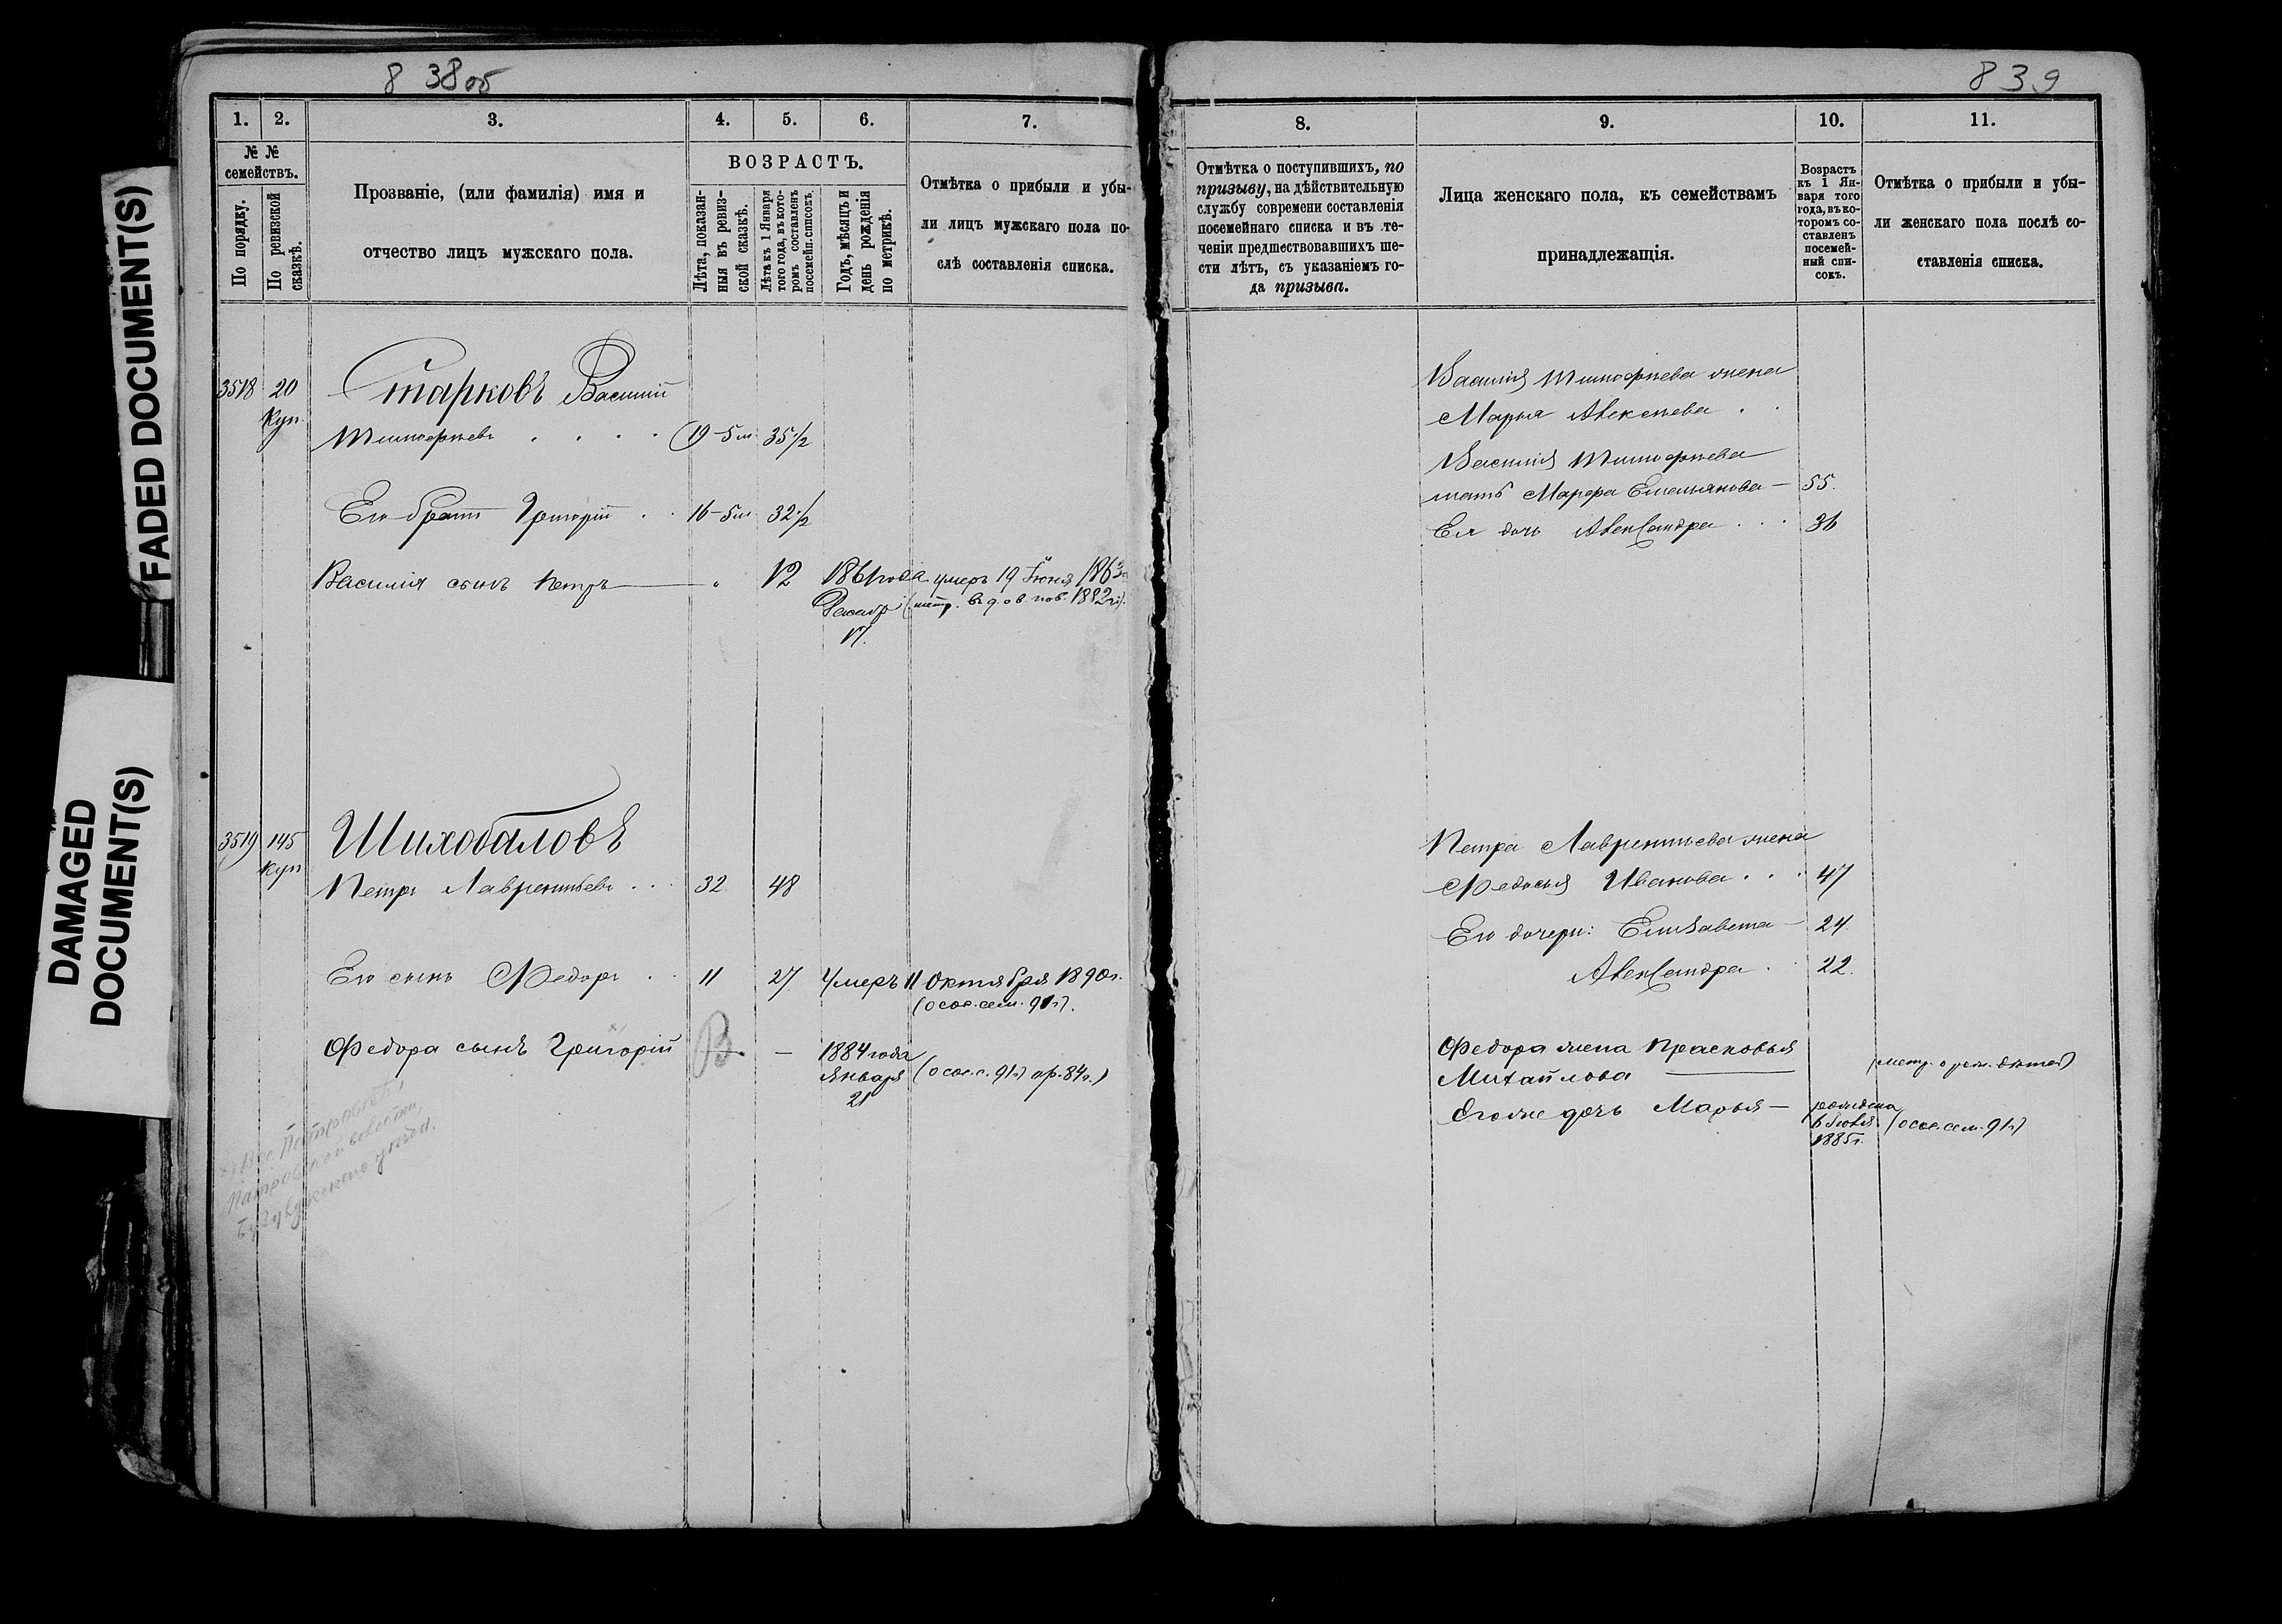 FADED DOCUMENT(S)
DAMAGED
DOCUMENT(S)
838об
1. 2. 3. 4. 5. 6. 7.
№ №
семействъ.
По порядку.
По ревизской
сказкѣ.
Прозваніе, (или фамилія) имя и
отчество лицъ мужскаго пола.
ВОЗРАСТЪ.
Лѣта, показан-
ныя въ ревиз-
ской сказкѣ.
Лѣта къ 1 Января
того года, въ кото-
ромъ составленъ
посемейн. списокъ.
Годъ, мѣсяцъ и
день рожденія
по метрикѣ.
Отмѣтка о прибыли и убы-
ли лицъ мужскаго пола по-
слѣ составленія списка.
3518 20 Старковъ Василий
Куп.
Тимофѣевъ . . . . 19-5м 35 1/2
Его братъ Григорій . . 16-5м 32 1/2
Василія сынъ Петръ — " 12 1861 года умеръ 19 Іюня 1863
Декабр (метр. 1882
17.
3519 145 Шихобаловъ
Куп
Петръ Лаврентьевъ . . . 32. 48
Его сынъ Ѳедоръ . . 11 27 Умеръ 11 Октября 1890г.
(о сос. сем. 91г).
Ѳедора сынъ Григорій В. — 1884 года
Января (о сос. с. 91г) пр. 84г.)
21
839
8. 9. 10. 11.
Отмѣтка о поступившихъ, по
призыву, на дѣйствительную
службу современи составленія
посемейнаго списка и въ те-
ченіи предшествовавшихъ ше-
сти лѣтъ, съ указаніемъ го-
да призыва.
Лица женскаго пола, къ семействамъ
принадлежащія.
Возрастъ
къ 1 Ян-
варя того
года, въ ко-
торомъ со-
ставленъ
посемей-
ный спи-
сокъ.
Отмѣтка о прибыли и убы-
ли женскаго пола послѣ со-
ставленія списка.
Василія Тимофѣева жена
Марья Алексѣева . .
Василія Тимофѣева
мать Марфа Емельянова — 55.
Ея дочь Александра . . . 36
Петра Лаврентьева жена
Ѳедосья Иванова . . . 47
Его дочери: Елизавета — 24.
Александра . 22.
Ѳедора жена Прасковья
Михайлова — (метр. о рож. дѣтей)
Его же дочь Марья — рождена
6 Іюля (о сос. сем. 91г)
1885г.